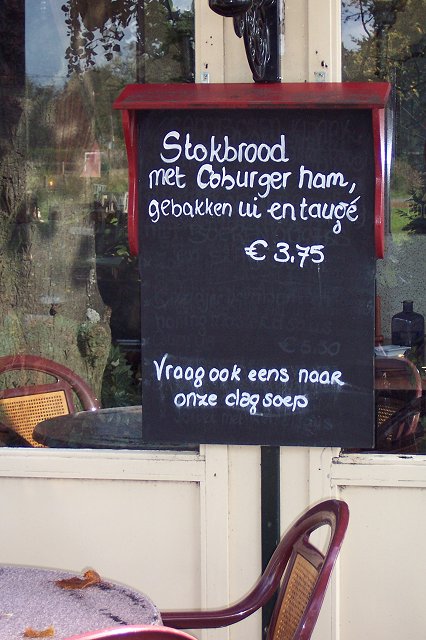 Stokbrood
met Coburger ham,
gebakken ui en taugé
€ 3.75
Vraag ook eens naar
onze dagsoep